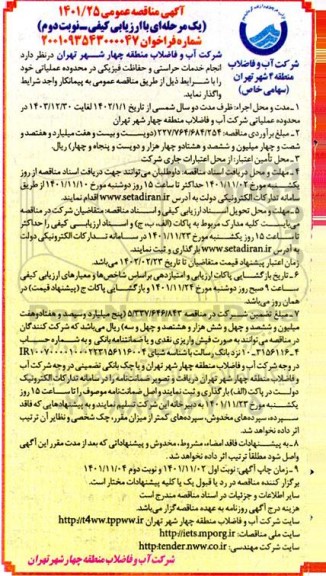 آگهی مناقصه عمومی ۱۴۰۱/۲۵
(یک مرحله‌ای با ارزیابی کیفی_نوبت دوم)
شماره فراخوان ۲۰۰۱۰۹۳۵۴۳۰۰۰۰۴۷
شرکت آب و فاضلاب
منطقه ۴ شهر تهران
(سهامی خاص)
شرکت آب و فاضلاب منطقه چهار شهر تهران در نظر دارد
انجام خدمات حراستی و حفاظت فیزیکی در محدوده عملیاتی خود
را با شرایط ذیل از طریق مناقصه عمومی به پیمانکار واجد شرایط
واگذار نماید.
۱_مدت و محل اجراء: ظرف مدت دو سال شمسی از تاریخ ۱۴۰۲/۱/۱ لغایت ۱۴۰۳/۱۲/۳۰ در
محدوده عملیاتی شرکت آب و فاضلاب منطقه چهار شهر تهران
۲_مبلغ برآوردی مناقصه: ۲۲۷/۷۶۴/۶۸۴/۲۵۴ (دویست و بیست و هفت میلیارد و هفتصد و
شصت و چهار میلیون و ششصد و هشتاد و چهار هزار و دویست و پنجاه و چهار) ریال.
۳_محل تأمین اعتبار: از محل اعتبارات جاری شرکت
۴_مهلت و محل دریافت اسناد مناقصه: داوطلبان می‌توانند جهت دریافت اسناد مناقصه از روز
یکشنبه مورخ ۱۴۰۱/۱۱/۰۲ حداکثر تا ساعت ۱۵ روز دوشنبه مورخ ۱۴۰۱/۱۱/۱۰ از طریق
سامانه تدارکات الکترونیکی دولت به آدرس www.setadiran.ir اقدام نمایند.
۵_مهلت و محل تحویل اسناد ارزیابی کیفی و اسناد مناقصه: متقاضیان شرکت در مناقصه
می‌بایست کلیه مدارک مربوط به پاکات (الف، ب، ج) و اسناد ارزیابی کیفی را حداکثر
تا ساعت ۱۵ روز یکشنبه مورخ ۱۴۰۱/۱۱/۲۳ در سامانه تدارکات الکترونیکی دولت
به آدرس www.setadiran.ir بارگذاری و ثبت نمایند.
زمان اعتبار پیشنهاد قیمت متقاضیان تا تاریخ ۱۴۰۲/۰۲/۲۳ می‌باشد.
۶_تاریخ بازگشایی پاکات ارزیابی و امتیازدهی براساس شاخص‌ها و معیارهای ارزیابی کیفی
ساعت ۹ صبح روز دوشنبه مورخ ۱۴۰۱/۱۱/۲۴ و بازگشایی پاکات ج (پیشنهاد قیمت) در
همان روز می‌باشد.
۷_مبلغ تضمین شرکت در مناقصه ۵/۳۳۷/۶۴۶/۸۴۳ (پنج میلیارد و سیصد و هفت
میلیون و ششصد و چهل و شش هزار و هشتصد و چهل و سه) ریال می‌باشد که شرکت کنندگان
در مناقصه می‌توانند به صورت فیش واریزی نقدی و یا ضمانتنامه بانکی و به شماره حساب
در وجه شرکت آب و فاضلاب منطقه چهار شهر تهران و یا چک بانکی تضمینی در وجه شرکت آب
و فاضلاب منطقه چهار شهر تهران دریافت و تصویر ضمانتنامه را در سامانه تدارکات الکترونیک
دولت در پاکت (الف) بارگذاری و ثبت نمایند و اصل ضمانتنامه موصوف را تا ساعت ۱۵ روز
یکشنبه مورخ ۱۴۰۱/۱۱/۲۳ به دبیرخانه این شرکت تسلیم نمایند و به پیشنهادهایی که فاقد
سپرده، سپرده‌های مخدوش، سپرده‌های کمتر از میزان مقرر، چک شخصی و نظایر آن ترتیب
اثر داده نخواهد شد.
۸_به پیشنهادات فاقد امضاء، مشروط، مخدوش و پیشنهاداتی که بعد از مدت مقرر این آگهی
واصل شود مطلقاً ترتیب اثر داده نخواهد شد.
۹_زمان چاپ آگهی: نوبت اول ۱۴۰۱/۱۱/۰۲ و نوبت دوم ۱۴۰۱/۱۱/۰۴
برگزار کننده مناقصه در رد یا قبول یک یا کلیه پیشنهادات مختار است.
سایر اطلاعات و جزئیات در اسناد مناقصه مندرج است
هزینه درج آگهی روزنامه به عهده مناقصه‌گزار می‌باشد.
سایت شرکت آب و فاضلاب منطقه چهار شهر تهران http://t4ww.tppww.ir
سایت ملی مناقصات: http://iets.mporg.ir
سایت شرکت مهندسی: http:tender.nww.co.ir
شرکت آب و فاضلاب منطقه چهار شهر تهران